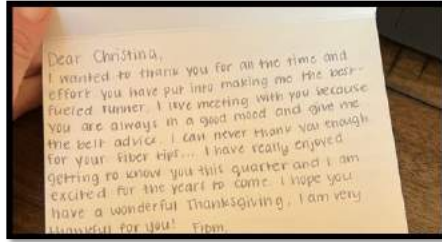 Dear Christina,
I wanted to thank you for all the time and
effort you have put into making me the best-
fueled runner. I love meeting with you because
you are always in a good mood and give me
the best advice. I can never thank you enough
for your fiber tips... I have really enjoyed
getting to know you this quarter and I am
excited for the years to come. I hope you
have a wonderful Thanksgiving. I am very
thankful for you! From,